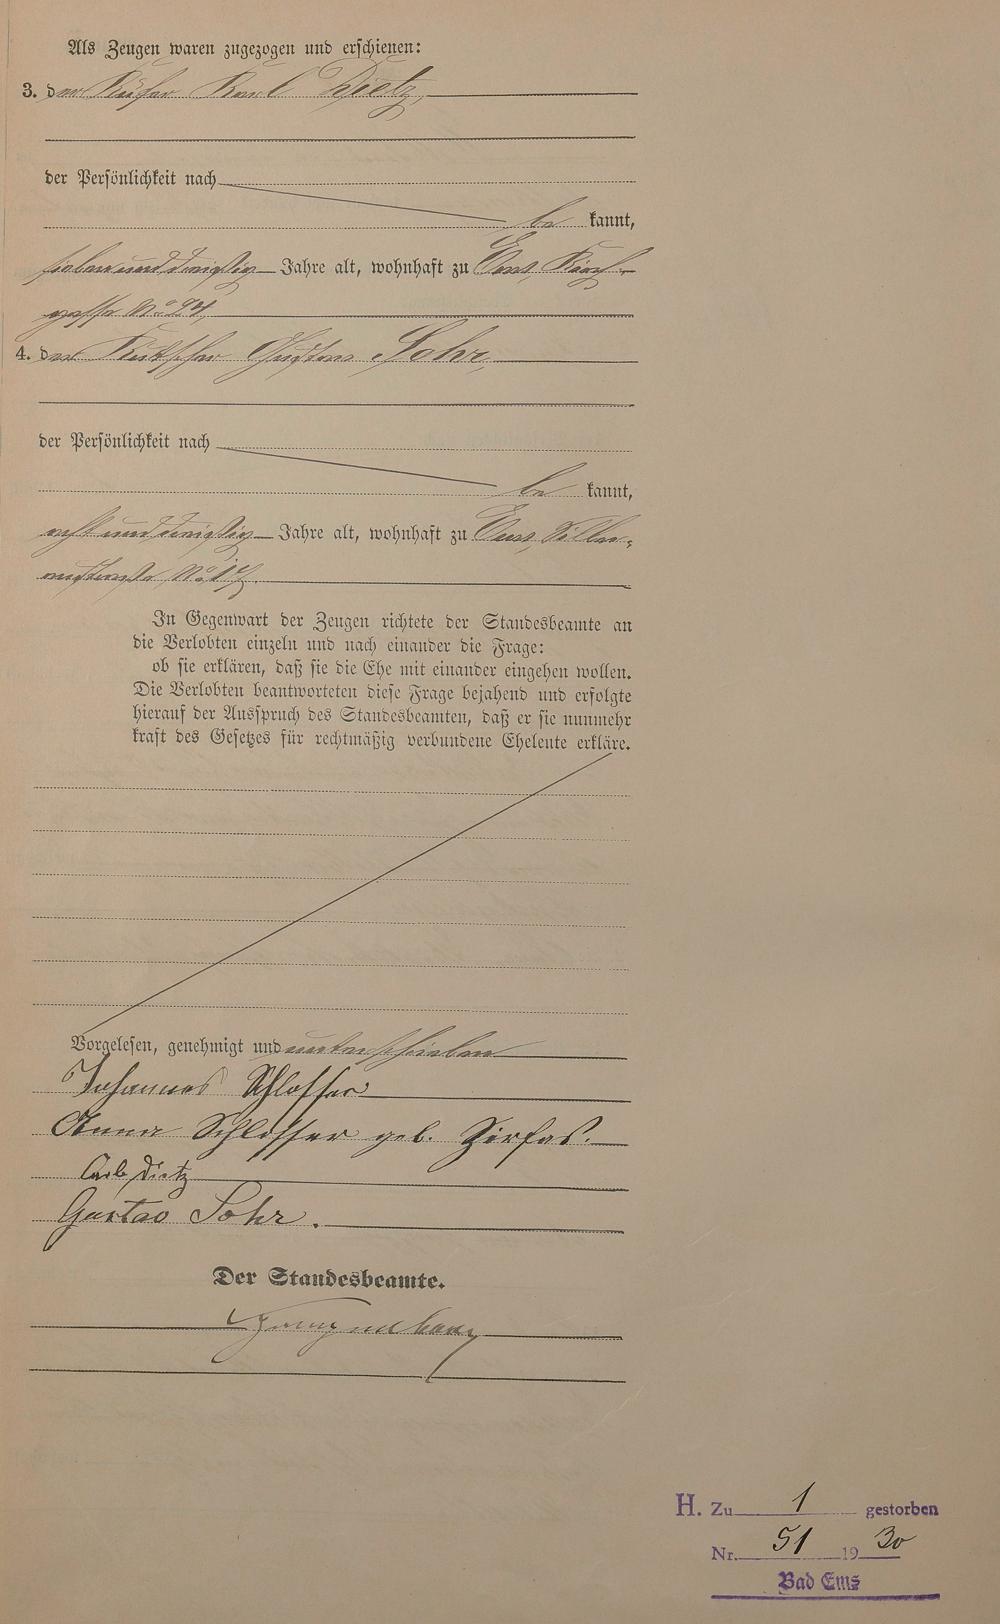 Als Zeugen waren zugezogen und erschienen:
3. der Küfer Karl Dietz,
der Persönlichkeit nach
be kannt,
siebenunddreißig Jahre alt, wohnhaft zu Ems, Kirch-
gasse No 24,
4. der Kutscher Gustav Sohr,
der Persönlichkeit nach
be kannt,
achtunddreißig Jahre alt, wohnhaft zu Ems, Silber-
austraße No 17.
In Gegenwart der Zeugen richtete der Standesbeamte an
die Verlobten einzeln und nach einander die Frage:
ob sie erklären, daß sie die Ehe mit einander eingehen wollen.
Die Verlobten beantworteten diese Frage bejahend und erfolgte
hierauf der Ausspruch des Standesbeamten, daß er sie nunmehr
kraft des Gesetzes für rechtmäßig verbundene Eheleute erkläre.
Vorgelesen, genehmigt und unterschrieben
Johannes Schlosser
Anna Schlosser geb. Zirfas.
Carl Dietz
Gustav Sohr.
Der Standesbeamte.
H. Zu 1 gestorben
Nr. 51 1930
Bad Ems